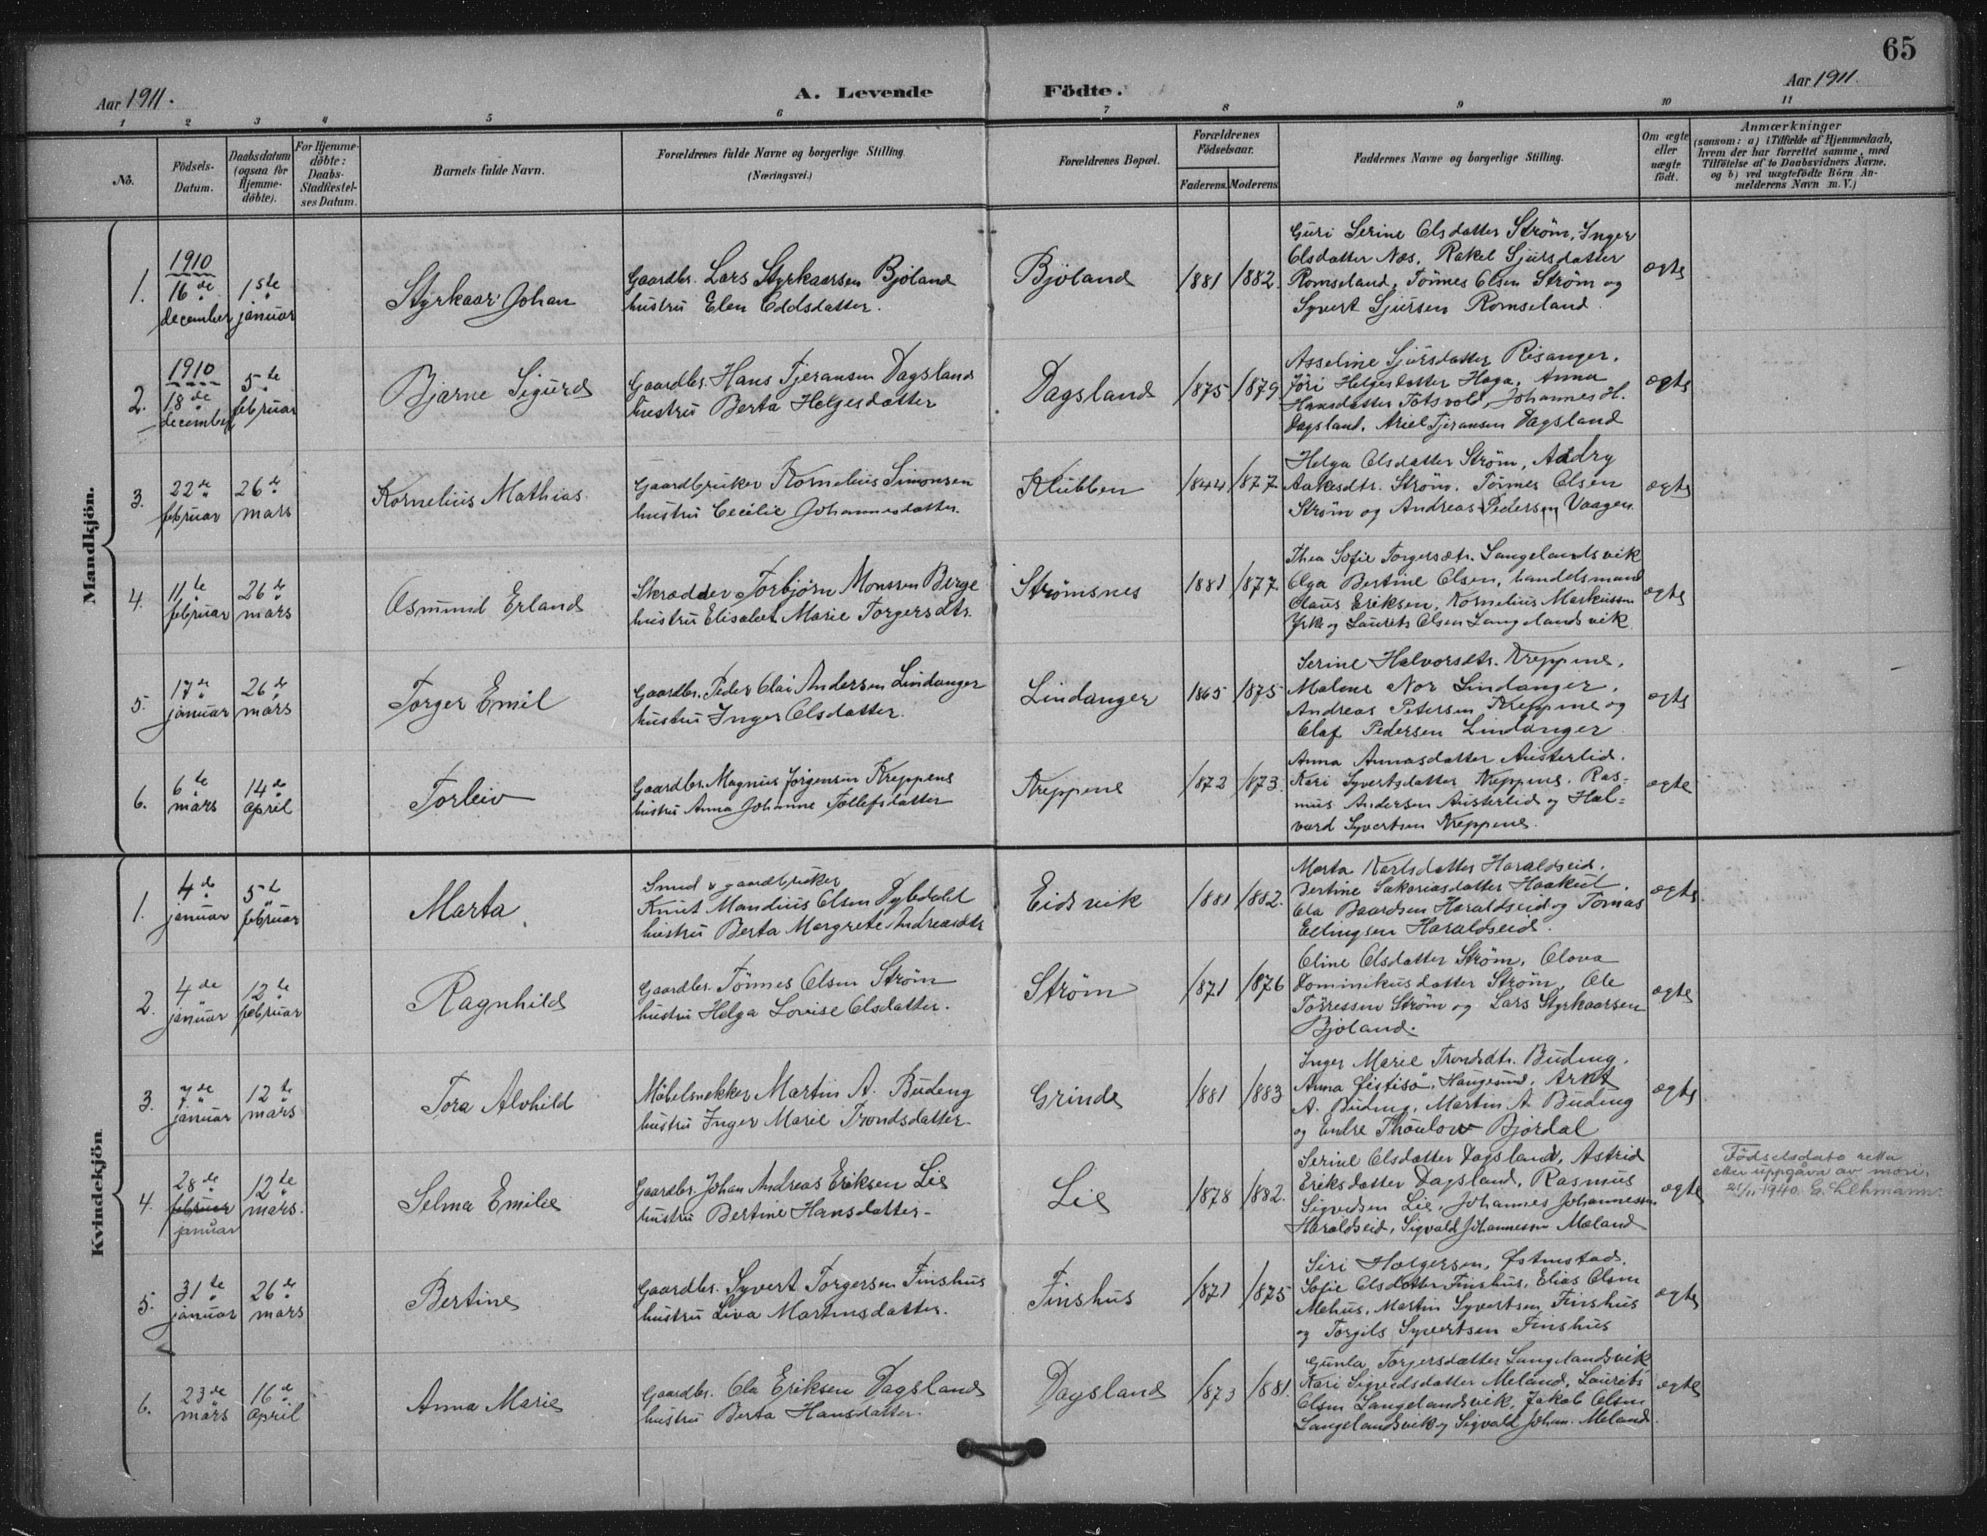 65
Aar 1911.
A. Levende Födte.
Aar 1911.
1 2 3 4 5 6 7 8 9 10 11
No.
Födsels-Datum.
Daabsdatum (ogsaa for Hjemme-döbte).
For Hjemme-döbte: Daabs-Stadfæstel-ses Datum.
Barnets fulde Navn.
Forældrenes fulde Navne og borgerlige Stilling. (Næringsvei.)
Forældrenes Bopæl.
Forældrenes Födselsaar.
Faderens. Moderens.
Faddernes Navne og borgerlige Stilling.
Om ægte eller uægte födt.
Anmærkninger
(saasom: a) i Tilfælde af Hjemmedaab,
hvem der har forrettet samme, med
Tilföielse af to Daabsvidners Navne,
og b) ved uægtefödte Börn An-
melderens Navn m. V.)
Mandkjön.
1. 1910 16de december 1ste januar
Styrkaar Johan
Gaardbr. Lars Styrkaarsen Bjöland
hustru Elen Oddsdatter.
Bjöland 1881 1882.
Guri Serine Olsdatter Strøm, Inger
Olsdatter Næs, Rakel Sjursdatter
Romseland, Tönnes Olsen Strøm og
Syvert Sjursen Romseland.
ægte
2. 1910 18de december 5te februar
Bjarne Sigurd
Gaardbr. Hans Tjeransen Dagsland
hustru Berta Helgesdatter
Dagsland 1875 1879
Asseline Sjursdatter Risanger,
Jöri Helgesdatter Haga, Anna
Hansdatter Totsvold, Johannes H.
Dagsland, Ariel Tjeransen Dagsland
ægte
3. 22de februar 26de mars
Kornelius Mathias.
Gaardbruker Kornelius Simonsen
hustru Cecilie Johannesdatter.
Klubben 1844 1877.
Helga Olsdatter Strøm, Aadry
Aakesdtr. Strøm, Tönnes Olsen
Strøm og Andreas Pedersen Vaagen.
ægte
4. 11te februar 26de mars
Asmund Erland
Skrædder Torbjørn Monssen Berge
hustru Elisabet Marie Torgersdtr.
Strømsnes 1881 1877.
Thea Sofie Torgersdtr. Langelandsvik
Olga Bertine Olsen, handelsmand
Claus Eriksen, Kornelius Markussen
Yrke og Laurets Olsen Langelandsvik.
ægte
5. 17de januar 26de mars
Torger Emil
Gaardbr. Peder Olai Andersen Lindanger
hustru Inger Olsdatter.
Lindanger 1865 1875
Serine Halvorsdtr. Kreppene,
Malene Nor Lindanger,
Andreas Petersen Kreppene og
Olaf Pedersen Lindanger
ægte
6. 6te mars 14de april
Torleiv
Gaardbr. Magnus Jörgensen Kreppene
hustru Anna Johanne Tollefsdatter
Kreppene 1872 1873.
Anna Annasdatter Austerlid.
Kari Syvertsdatter Kreppene, Ras-
mus Andersen Austerlid og Hal-
vard Syvertsen Kreppene.
ægte
Kvindekjön
1. 4de januar 5te februar
Marta
Smed & gaardbruker
Knut Mandius Olsen Dybdahl
hustru Berta Margrete Andreasdtr
Eidsvik 1881 1882.
Marta Karlsdatter Haraldseid.
Bertine Sakariasdatter Haakul.
Ola Baardsen Haraldseid og Tomas
Ellingsen Haraldseid.
ægte
2. 4de januar 12te februar
Ragnhild
Gaardbr. Tönnes Olsen Strøm
hustru Helga Lovise Olsdatter.
Strøm 1871 1876
Oline Olsdatter Strøm, Olova
Dominikusdatter Strøm, Ole
Törressen Strøm og Lars Styrkaarsen
Bjöland.
ægte
3. 7de januar 12te mars
Tora Alvhild
Möbelsnekker Martin A. Buding
hustru Inger Marie Trondsdatter
Grinde 1881 1883
Inger Marie Trondsdtr. Buding,
Anna Östisö, Haugesund, Arnt
A. Buding, Martin A. Buding
og Endre Thoulow Bjordal
ægte
4. 28de februar januar 12te mars.
Selma Emilie
Gaardbr. Johan Andreas Eriksen Lie
hustru Bertine Hansdatter.
Lie 1878 1882.
Serine Olsdatter Dagsland, Astrid
Eriksdatter Dagsland, Rasmus
Sigvedsen Lie, Johannes Johannessen
Haraldseid, Sigvald Johannessen Mæland
ægte
Födselsdato retta
etter uppgåva av mori.
21/11-1940. G. Lehmann.
5. 31te januar 26de mars
Bertine
Gaardbr. Syvert Torgersen Finshus
hustru Liva Martinsdatter.
Finshus 1871 1875
Siri Holgersen, Østenstad.
Sofie Olsdatter Finshus, Elias Olsen
Mehus, Martin Syvertsen Finshus
og Torgils Syvertsen Finshus
ægte
6. 23de mars 16de april
Anna Marie
Gaardbr. Ola Eriksen Dagsland
hustru Berta Hansdatter.
Dagsland 1873 1881.
Gunla Torgersdatter Langelandsvik
Kari Sigvedsdatter Meland, Laurits
Olsen Langelandsvik, Jakob Olsen
Langelandsvik og Sigvald Johan. Meland
ægte